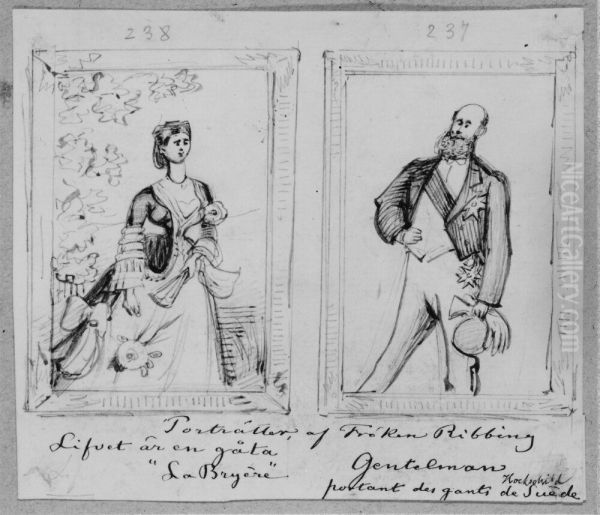 238
237
Porträtter, af Fröken Ribbing
Lifvet är en gåta
"La Bryère"
Gentelman
Hochschild
portant des gants de Suède
NiceArtGallery.com